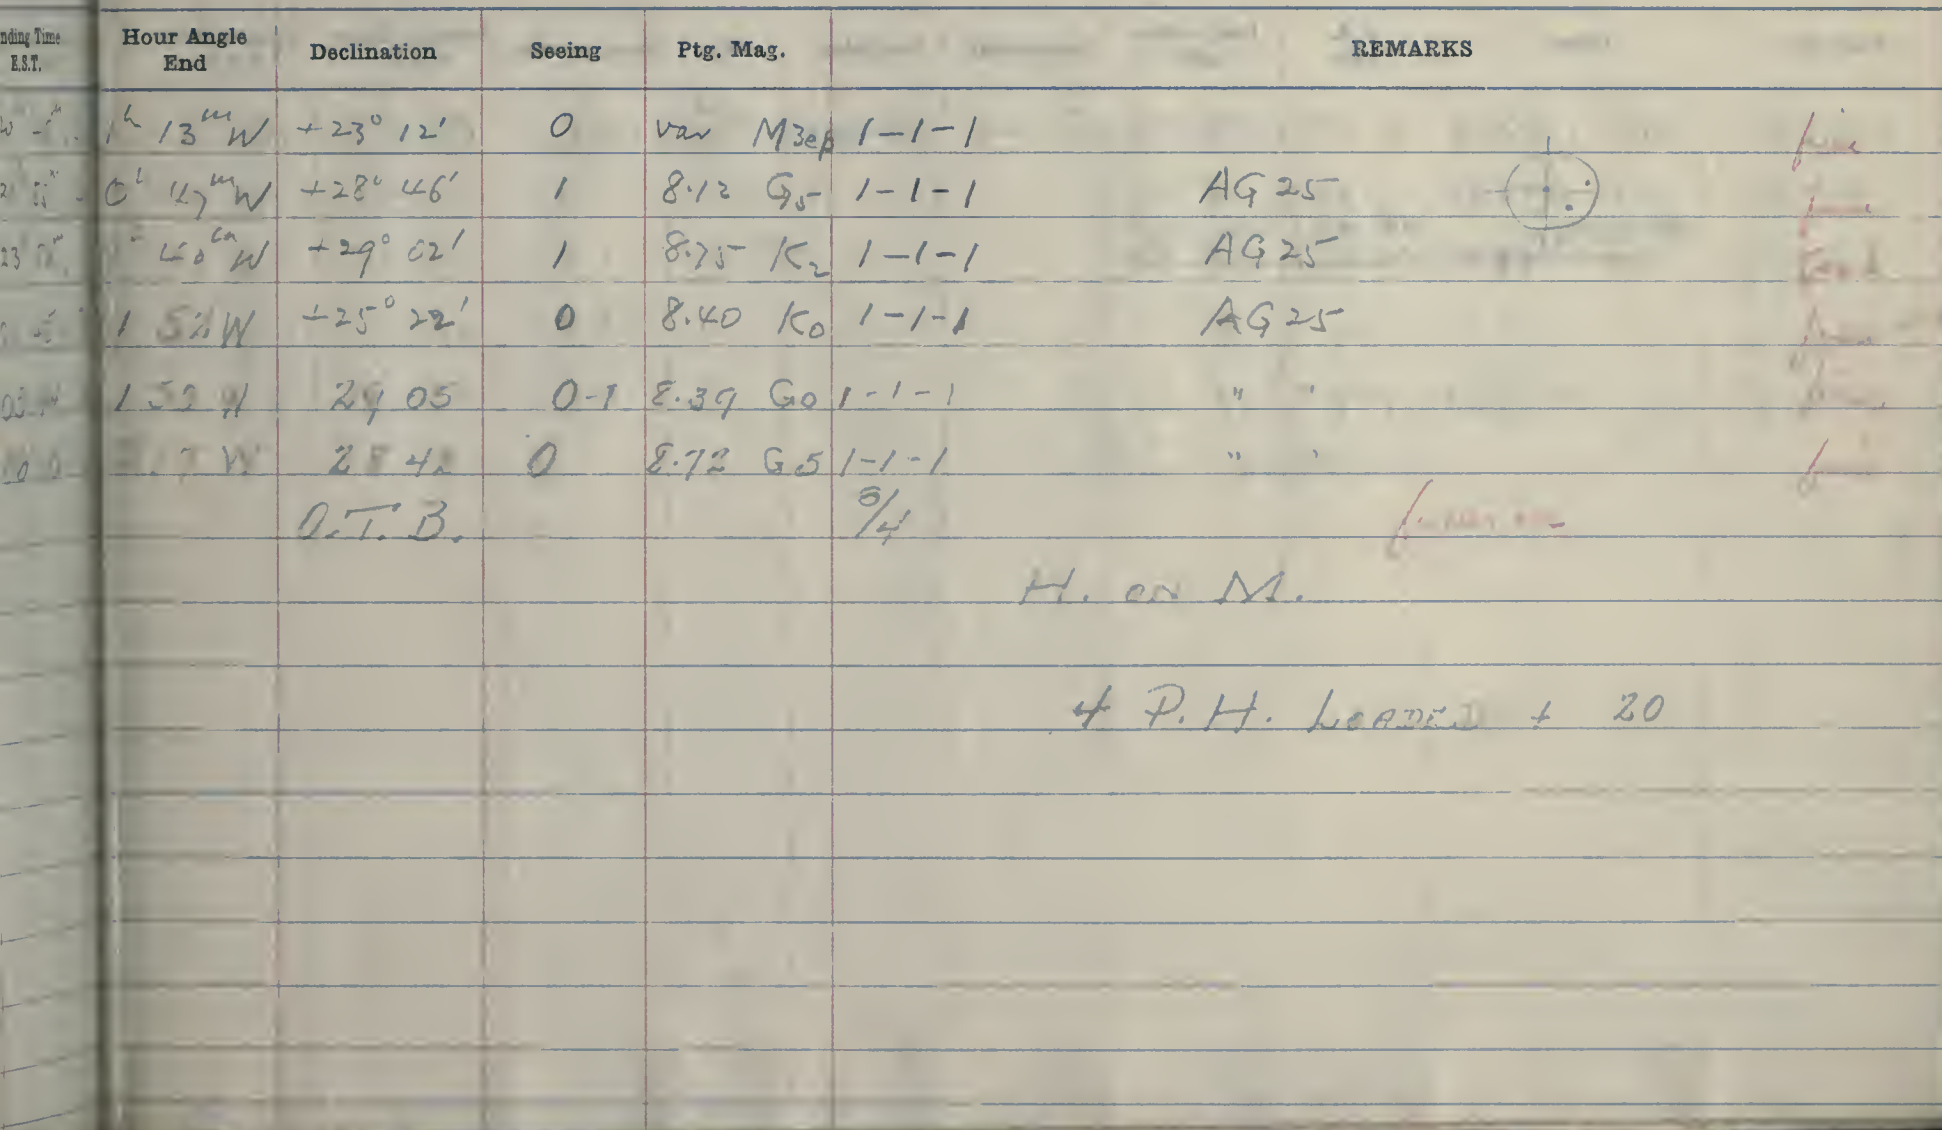 nding Time E.S.T. Hour Angle End Declination Seeing Ptg. Mag. REMARKS
1h 13m W +23° 12' 0 var M3ep 1-1-1 fine
0h 47m W +28° 46' 1 8.12 G5 1-1-1 AG 25
23 W +29° 02' 1 8.75 K2 1-1-1 AG 25 Good
1 52 W +25° 22' 0 8.40 K0 1-1-1 AG 25
1 52 W 29 05 0-1 8.39 G0 1-1-1 " '
W 28 42 0 8.72 G5 1-1-1 " '
O.T.B. 5/4
H. ON M.
4 P.H. LOADED + 20